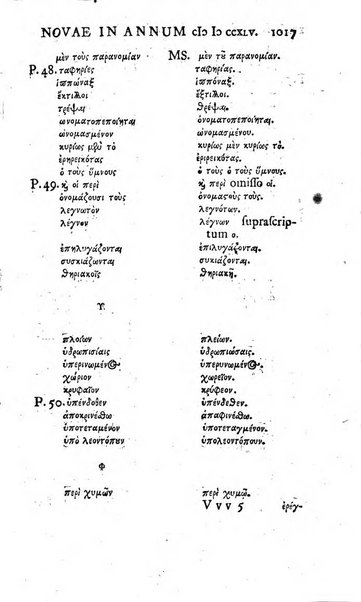 NOVAE IN ANNUM cIɔ Iɔ ccxlv. 1017
μὲν τοὺς παρανομίαν MS. μὲν τῶ παρανομίαν.
P. 48. ταφηρίες ταφηρίας.
ἱσπώναξ ἱσπόναξ.
ἔκτιλλοι ἔξτιλλοι.
τρέψαι θρέψαι.
ὠνοματοπεποίηται ὀνοματοπεποίηται.
ὠνομασμένον ὠνομασμένου.
κυρίως μϐὺ τὸ κυρίως μὲν κυρίως τὸ.
ἐρηρεικότας ἐριρεικότας.
ὁ τοὺς ὕμνους ὁ τοὺς ὁ τοὺς ὕμνους.
P. 49. ϗ οἱ περὶ ϗ περὶ omisso οἱ.
ὀνομάζουσι τοὺς ὀνομας τοὺς.
λεγνωτὸν λεγνώτων.
λέγνον λέγνων suprascrip-
tum ο.
ἐπηλυγάζονται ἐπιλυγάζονται.
συσκιάζονται συκιάζονται.
θηριακοῖς θηριακῆ.
Υ
πλοίων πλείων.
ὑδρωπισίαις ὑδρωπιώσαις.
ὑπερινωμένος ὑπερυνωμένος.
χώριον χωρεῖον.
κρυφαῖον κρύφεον.
P. 50. ὑπένδοθεν ὑπένδεθεν.
ἀποκρινέσθω ἀπαφινέσθω.
ὑποτεταμένον ὑποτεταγμένον.
ὑπὸ λεοντόπουν ὑπολεοντόπους.
Φ
περὶ χυμῶν περὶ χυμοῦ.
V v v 5 ἐρέγ-